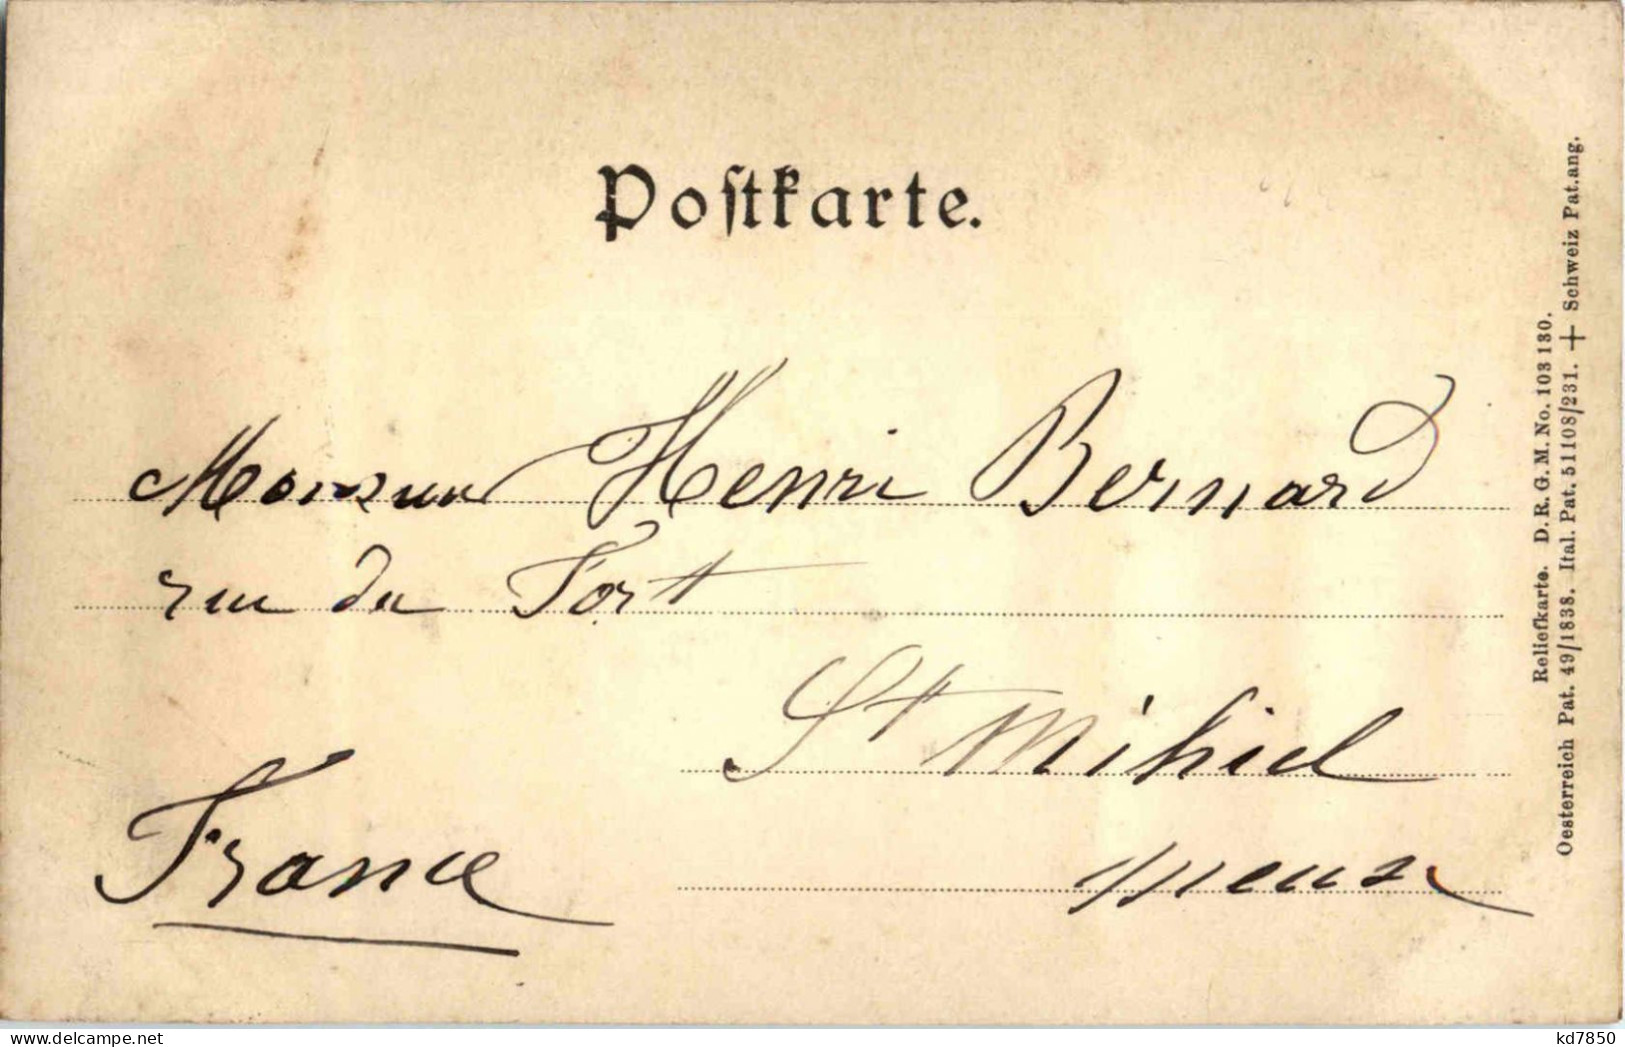 Postkarte.
Monsieur Henri Bernard
rue du Fort
St Mihiel
France
Meuse
Reliefkarte. D. R. G. M. No. 103 130.
Oesterreich Pat. 49/1838. Ital. Pat. 51108/231. + Schweiz Pat. ang.
www.delcampe.net
kd7850